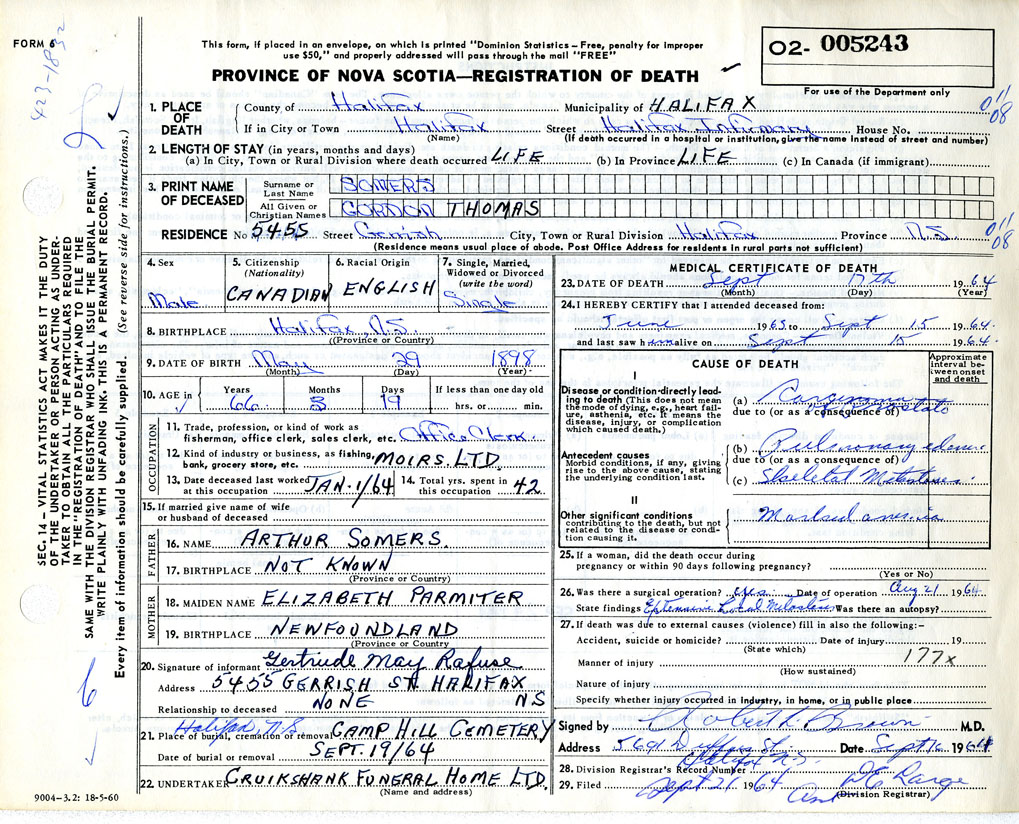 FORM 6
423-1832
This form, if placed in an envelope, on which is printed "Dominion Statistics – Free, penalty for improper
use $50," and properly addressed will pass through the mail "FREE"
PROVINCE OF NOVA SCOTIA—REGISTRATION OF DEATH
O2- 005243
For use of the Department only
1. PLACE OF DEATH
County of Halifax Municipality of HALIFAX
If in City or Town Halifax Street Halifax Infirmary House No.
(Name) (If death occurred in a hospital or institution, give the name instead of street and number)
011 08
2. LENGTH OF STAY (in years, months and days)
(a) In City, Town or Rural Division where death occurred LIFE (b) In Province LIFE (c) In Canada (if immigrant)
3. PRINT NAME OF DECEASED
Surname or Last Name SOMERS
All Given or Christian Names GORDON THOMAS
RESIDENCE No 5455 Street Gerrish City, Town or Rural Division Halifax Province N.S.
(Residence means usual place of abode. Post Office Address for residents in rural parts not sufficient)
011 08
4. Sex Male
5. Citizenship (Nationality) CANADIAN
6. Racial Origin ENGLISH
7. Single, Married, Widowed or Divorced (write the word) Single
8. BIRTHPLACE Halifax, N.S.
(Province or Country)
9. DATE OF BIRTH May 29 1898
(Month) (Day) (Year)
10. AGE in Years 66 Months 3 Days 19 If less than one day old hrs. or min.
OCCUPATION
11. Trade, profession, or kind of work as fisherman, office clerk, sales clerk, etc. Office Clerk.
12. Kind of industry or business, as fishing, bank, grocery store, etc. MOIRS. LTD.
13. Date deceased last worked at this occupation JAN. 1/64 14. Total yrs. spent in this occupation 42
15. If married give name of wife or husband of deceased
FATHER
16. NAME ARTHUR SOMERS.
17. BIRTHPLACE NOT KNOWN
(Province or Country)
MOTHER
18. MAIDEN NAME ELIZABETH PARMITER
19. BIRTHPLACE NEWFOUNDLAND
(Province or Country)
20. Signature of informant Gertrude May Rafuse
Address 5455 GERRISH ST. HALIFAX
Relationship to deceased NONE NS
Halifax, N.S.
21. Place of burial, cremation or removal CAMP HILL CEMETERY
Date of burial or removal SEPT. 19/64
22. UNDERTAKER CRUIKSHANK FUNERAL HOME LTD.
(Name and address)
MEDICAL CERTIFICATE OF DEATH
23. DATE OF DEATH Sept 17th 1964
(Month) (Day) (Year)
24. I HEREBY CERTIFY that I attended deceased from:
June 1963 to Sept 15 1964
and last saw him alive on Sept 15 1964
CAUSE OF DEATH
Approximate interval between onset and death
I
Disease or condition directly leading to death (This does not mean the mode of dying, e.g., heart failure, asthenia, etc. It means the disease, injury, or complication which caused death.)
(a) Carcinoma prostate
due to (or as a consequence of)
Antecedent causes
Morbid conditions, if any, giving rise to the above cause, stating the underlying condition last.
(b) Pulmonary edema
due to (or as a consequence of)
(c) Skeletal Metastases
II
Other significant conditions
contributing to the death, but not related to the disease or condition causing it.
Marked anemia
25. If a woman, did the death occur during
pregnancy or within 90 days following pregnancy?
(Yes or No)
26. Was there a surgical operation? yes Date of operation Aug 21 1964
State findings Extensive Local Was there an autopsy?
27. If death was due to external causes (violence) fill in also the following:–
Accident, suicide or homicide? Date of injury 19
(State which)
Manner of injury 177x
(How sustained)
Nature of injury
Specify whether injury occurred in Industry, in home, or in public place
Signed by Robert L Brown M.D.
Address 5691 St Halifax N.S. Date Sept 16 1964
28. Division Registrar's Record Number
29. Filed Sept 21 1964
(Division Registrar)
SEC. 14 – VITAL STATISTICS ACT MAKES IT THE DUTY
OF THE UNDERTAKER OR PERSON ACTING AS UNDER-
TAKER TO OBTAIN ALL THE PARTICULARS REQUIRED
IN THE "REGISTRATION OF DEATH" AND TO FILE THE
SAME WITH THE DIVISION REGISTRAR WHO SHALL ISSUE THE BURIAL PERMIT.
WRITE PLAINLY WITH UNFADING INK. THIS IS A PERMANENT RECORD.
Every item of information should be carefully supplied. (See reverse side for instructions.)
6
9004-3.2: 18-5-60